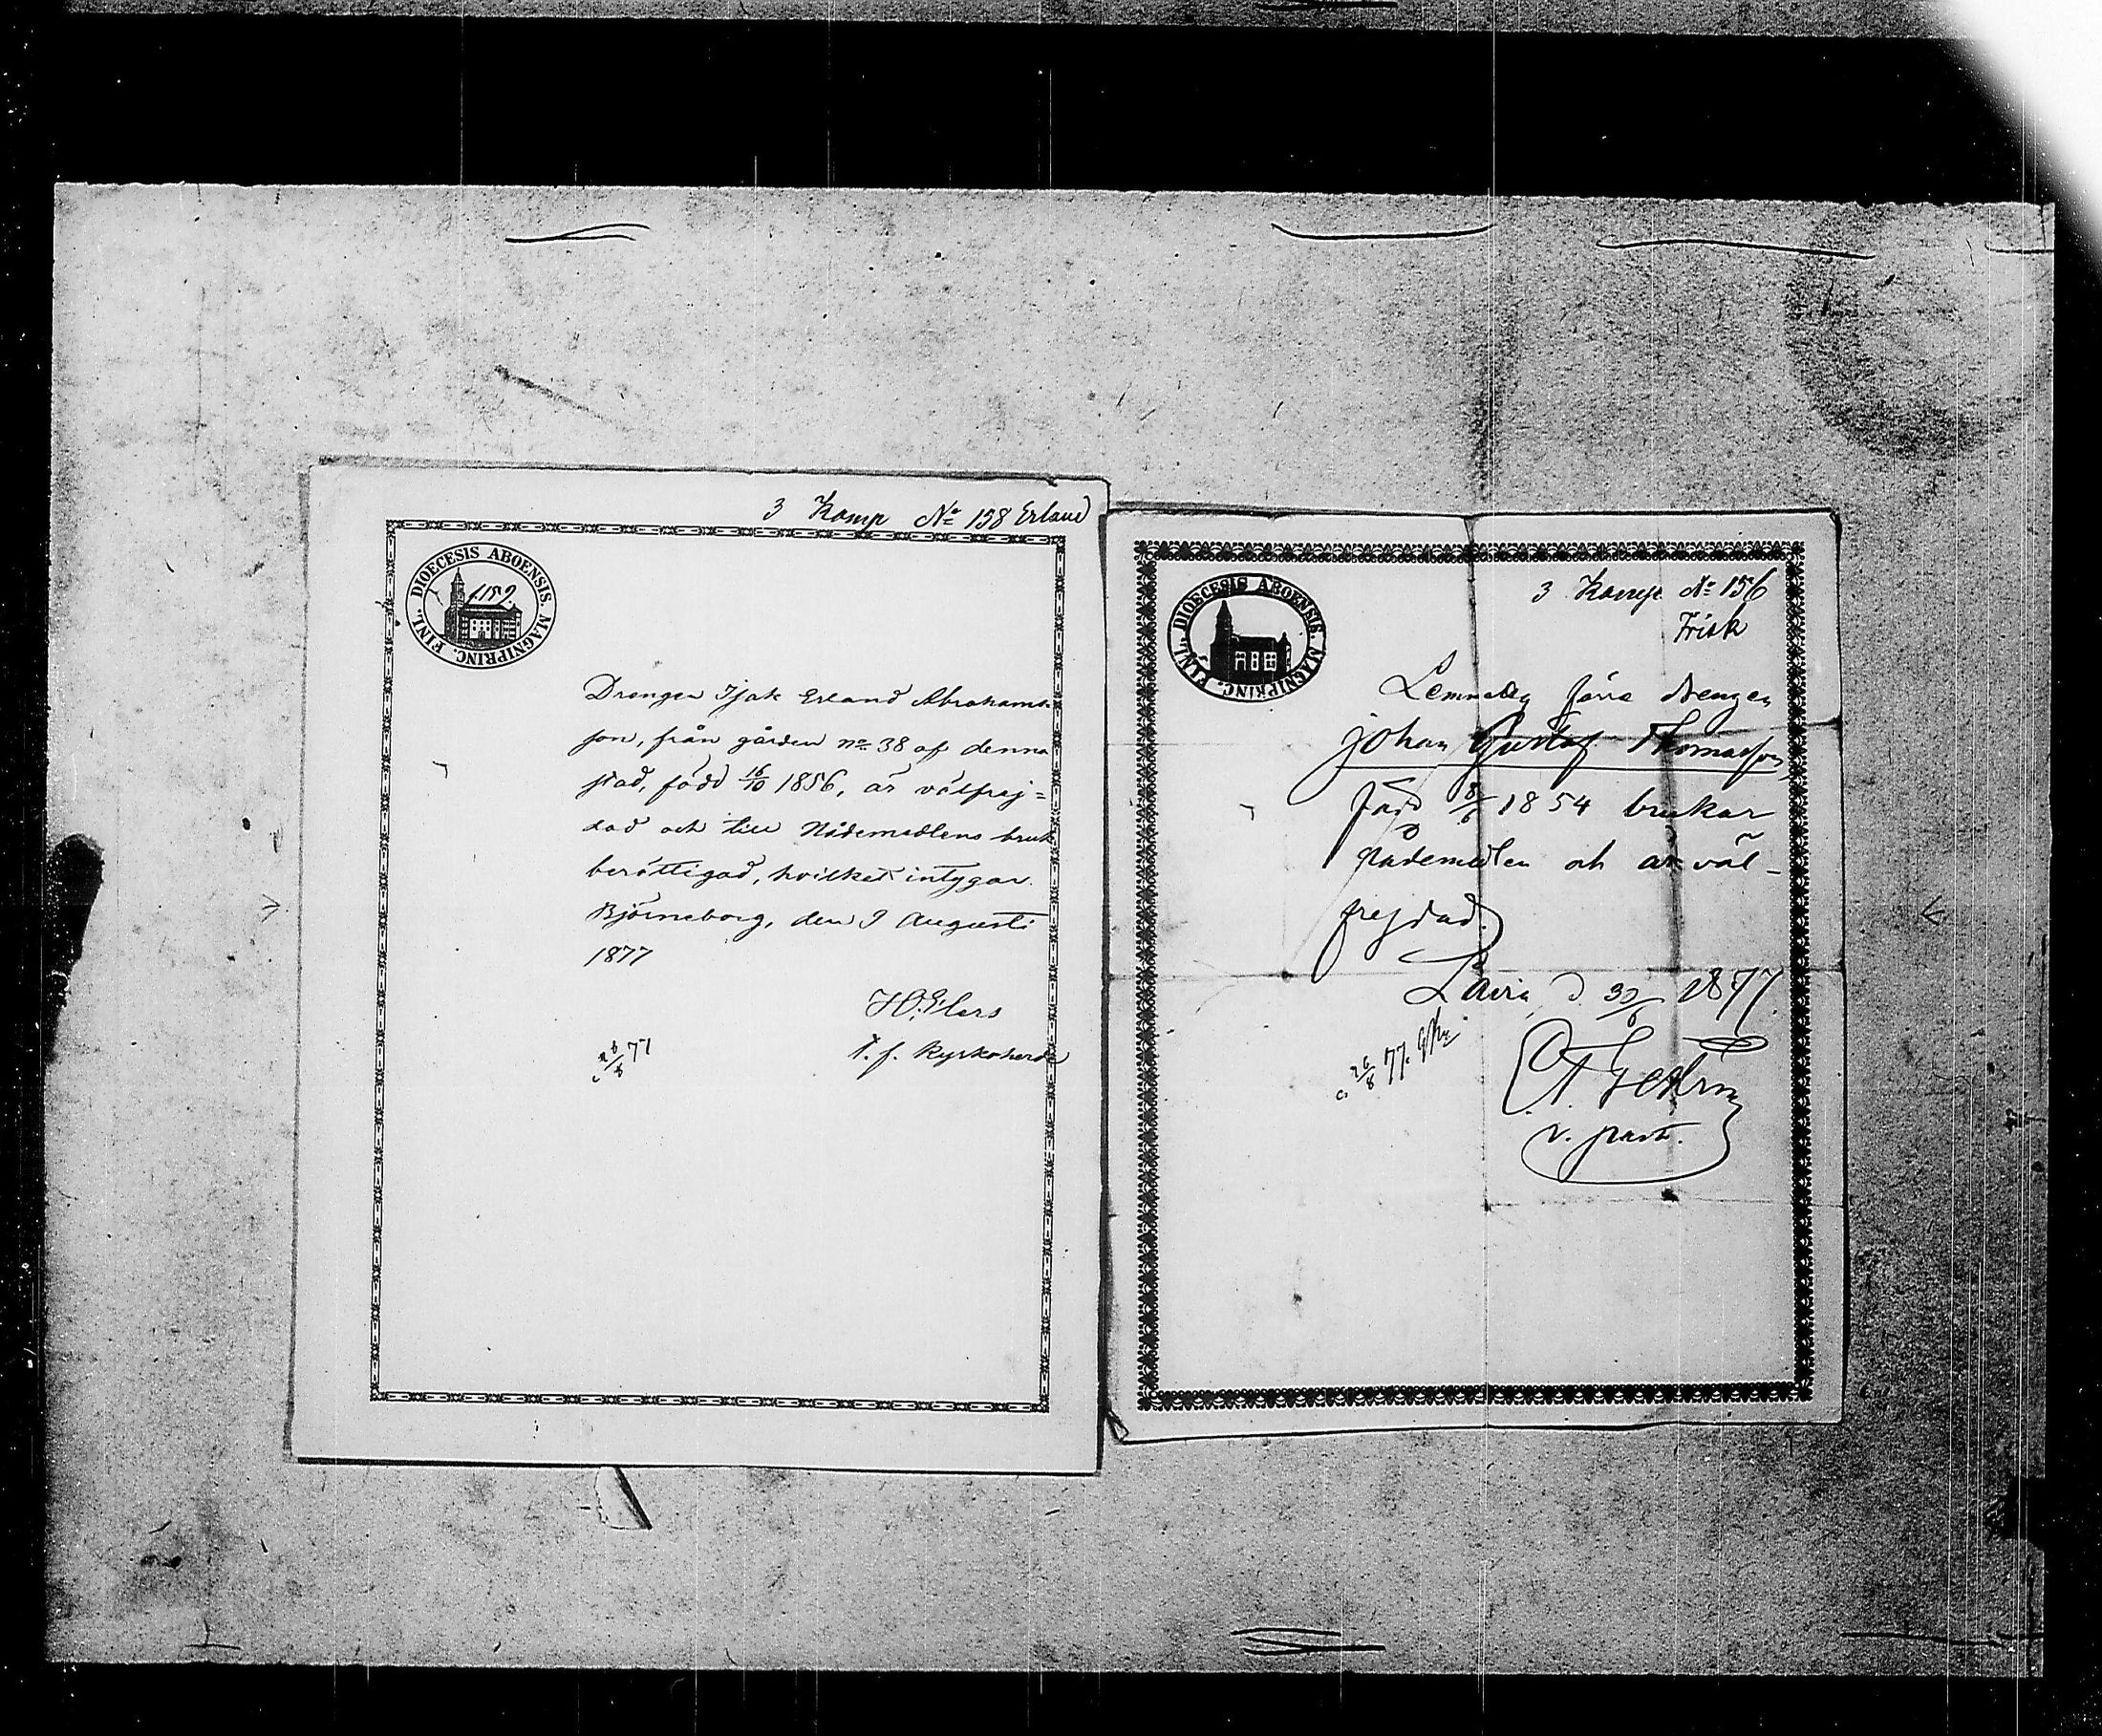 3 Komp No 158 Erland
DIOECESIS ABOENSIS. MAGNIPRINC. FINL.
1159.
Drengen Isak Erland Abrahams-
son, från gården no 38 af denna
stad, född 16/10 1856, är välfrej=
dad och till Nådemedlens bruk
berättigad, hvilket intygar.
Björneborg, den 9 Augusti
1877
H.O. Elers
t. f. Kyrkoherde
26/8 77
DIOECESIS ABOENSIS. MAGNIPRINC. FINL.
3 Komp. No 156
Frisk
drengen
Johan Gustaf Thomasson
född 8/6 1854 brukar
nådemedlen och är väl-
frejdad.
Lavia d. 30/6 1877.
v. past.
26/8 77.